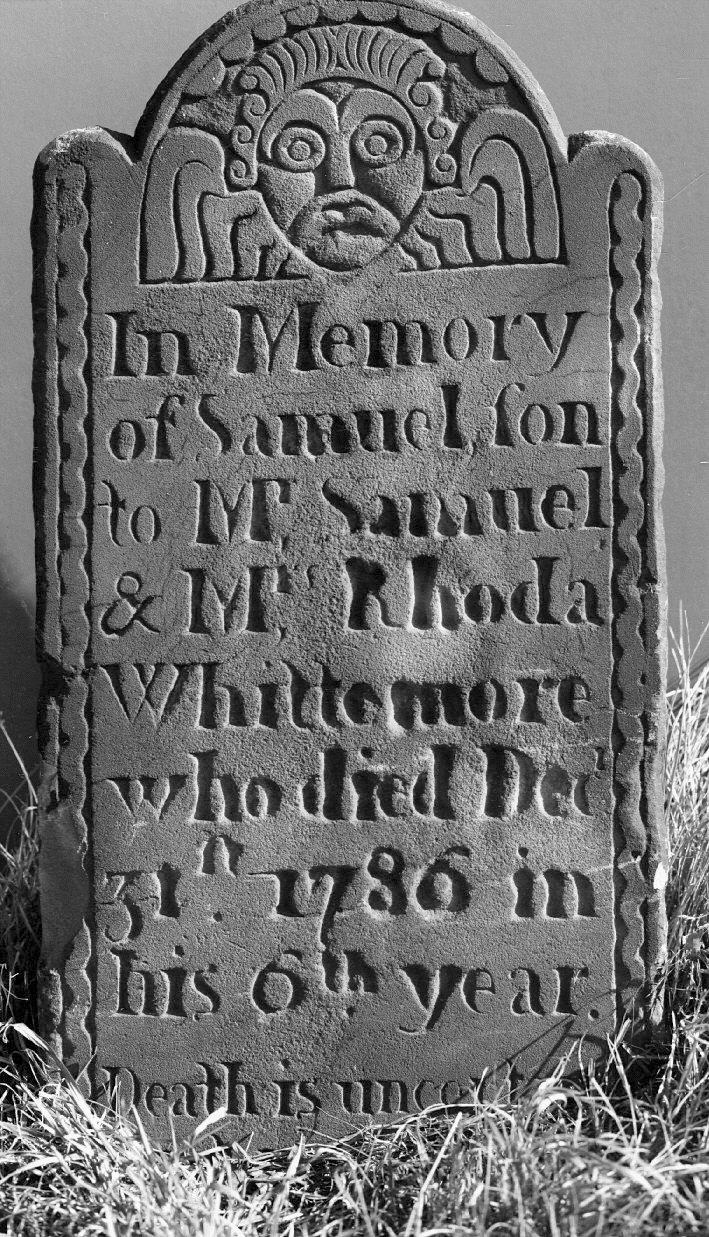 In Memory
of Samuel, ſon
to Mr. Samuel
& Mrs. Rhoda
Whittemore
who died Decr
31n. 1786 in
his 6th, year.
Death is